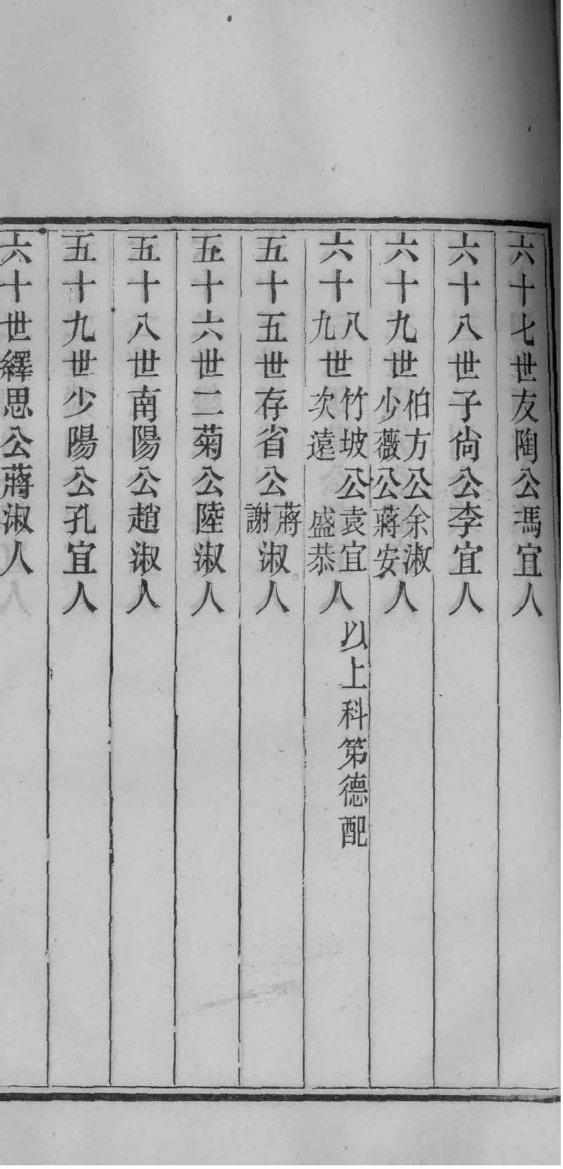 六十七世友陶公馮宜人
六十八世子尙公李宜人
六十九世伯方公余淑人
少薇公蔣安人
六十八世竹坡公袁宜人
九次遠盛恭
以上科第德配
五十五世存省公蔣淑人
謝
五十六世二菊公陸淑人
五十八世南陽公趙淑人
五十九世少陽公孔宜人
六十世繹思公蔣淑人